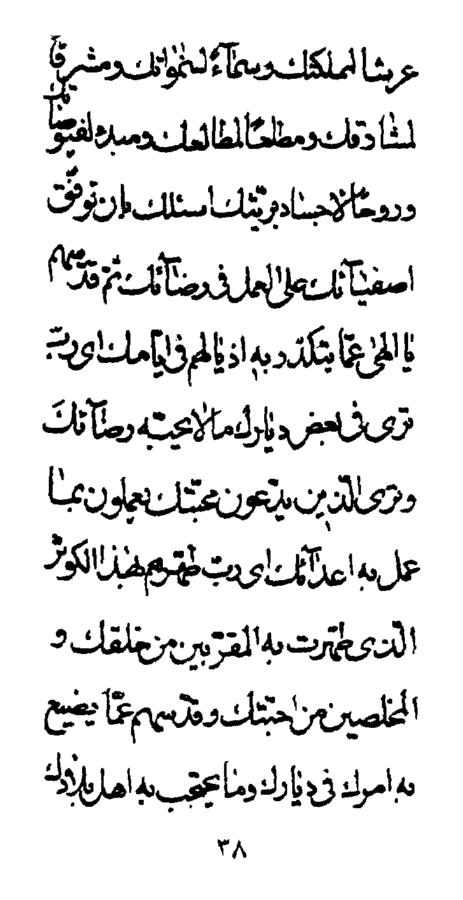 عرشا لمملكتك و سمآء لسمواتك و مشرقا
لمشارقك و مطلعا لمطالعك و مبدء لفيوضاتك
و روحا لاجساد بريّتك اسئلك بان توفّق
اصفيآئك على العمل فى رضآئك ثمّ قدّسهم
يا الهى عمّا يتكدّر به اذيالهم فى ايّامك اى ربّ
ترى فى بعض ديارك ما لا يحبّه رضآئك
و ترى الّذين يدّعون محبّتك يعملون بما
عمل به اعدآئك اى ربّ طهّرهم بهذا الكوثر
الّذى طهّرت به المقرّبين من خلقك و
المخلصين من احبّتك و قدّسهم عمّا يضيع
به امرك فى ديارك و ما يحتجب به اهل بلادك
٣٨